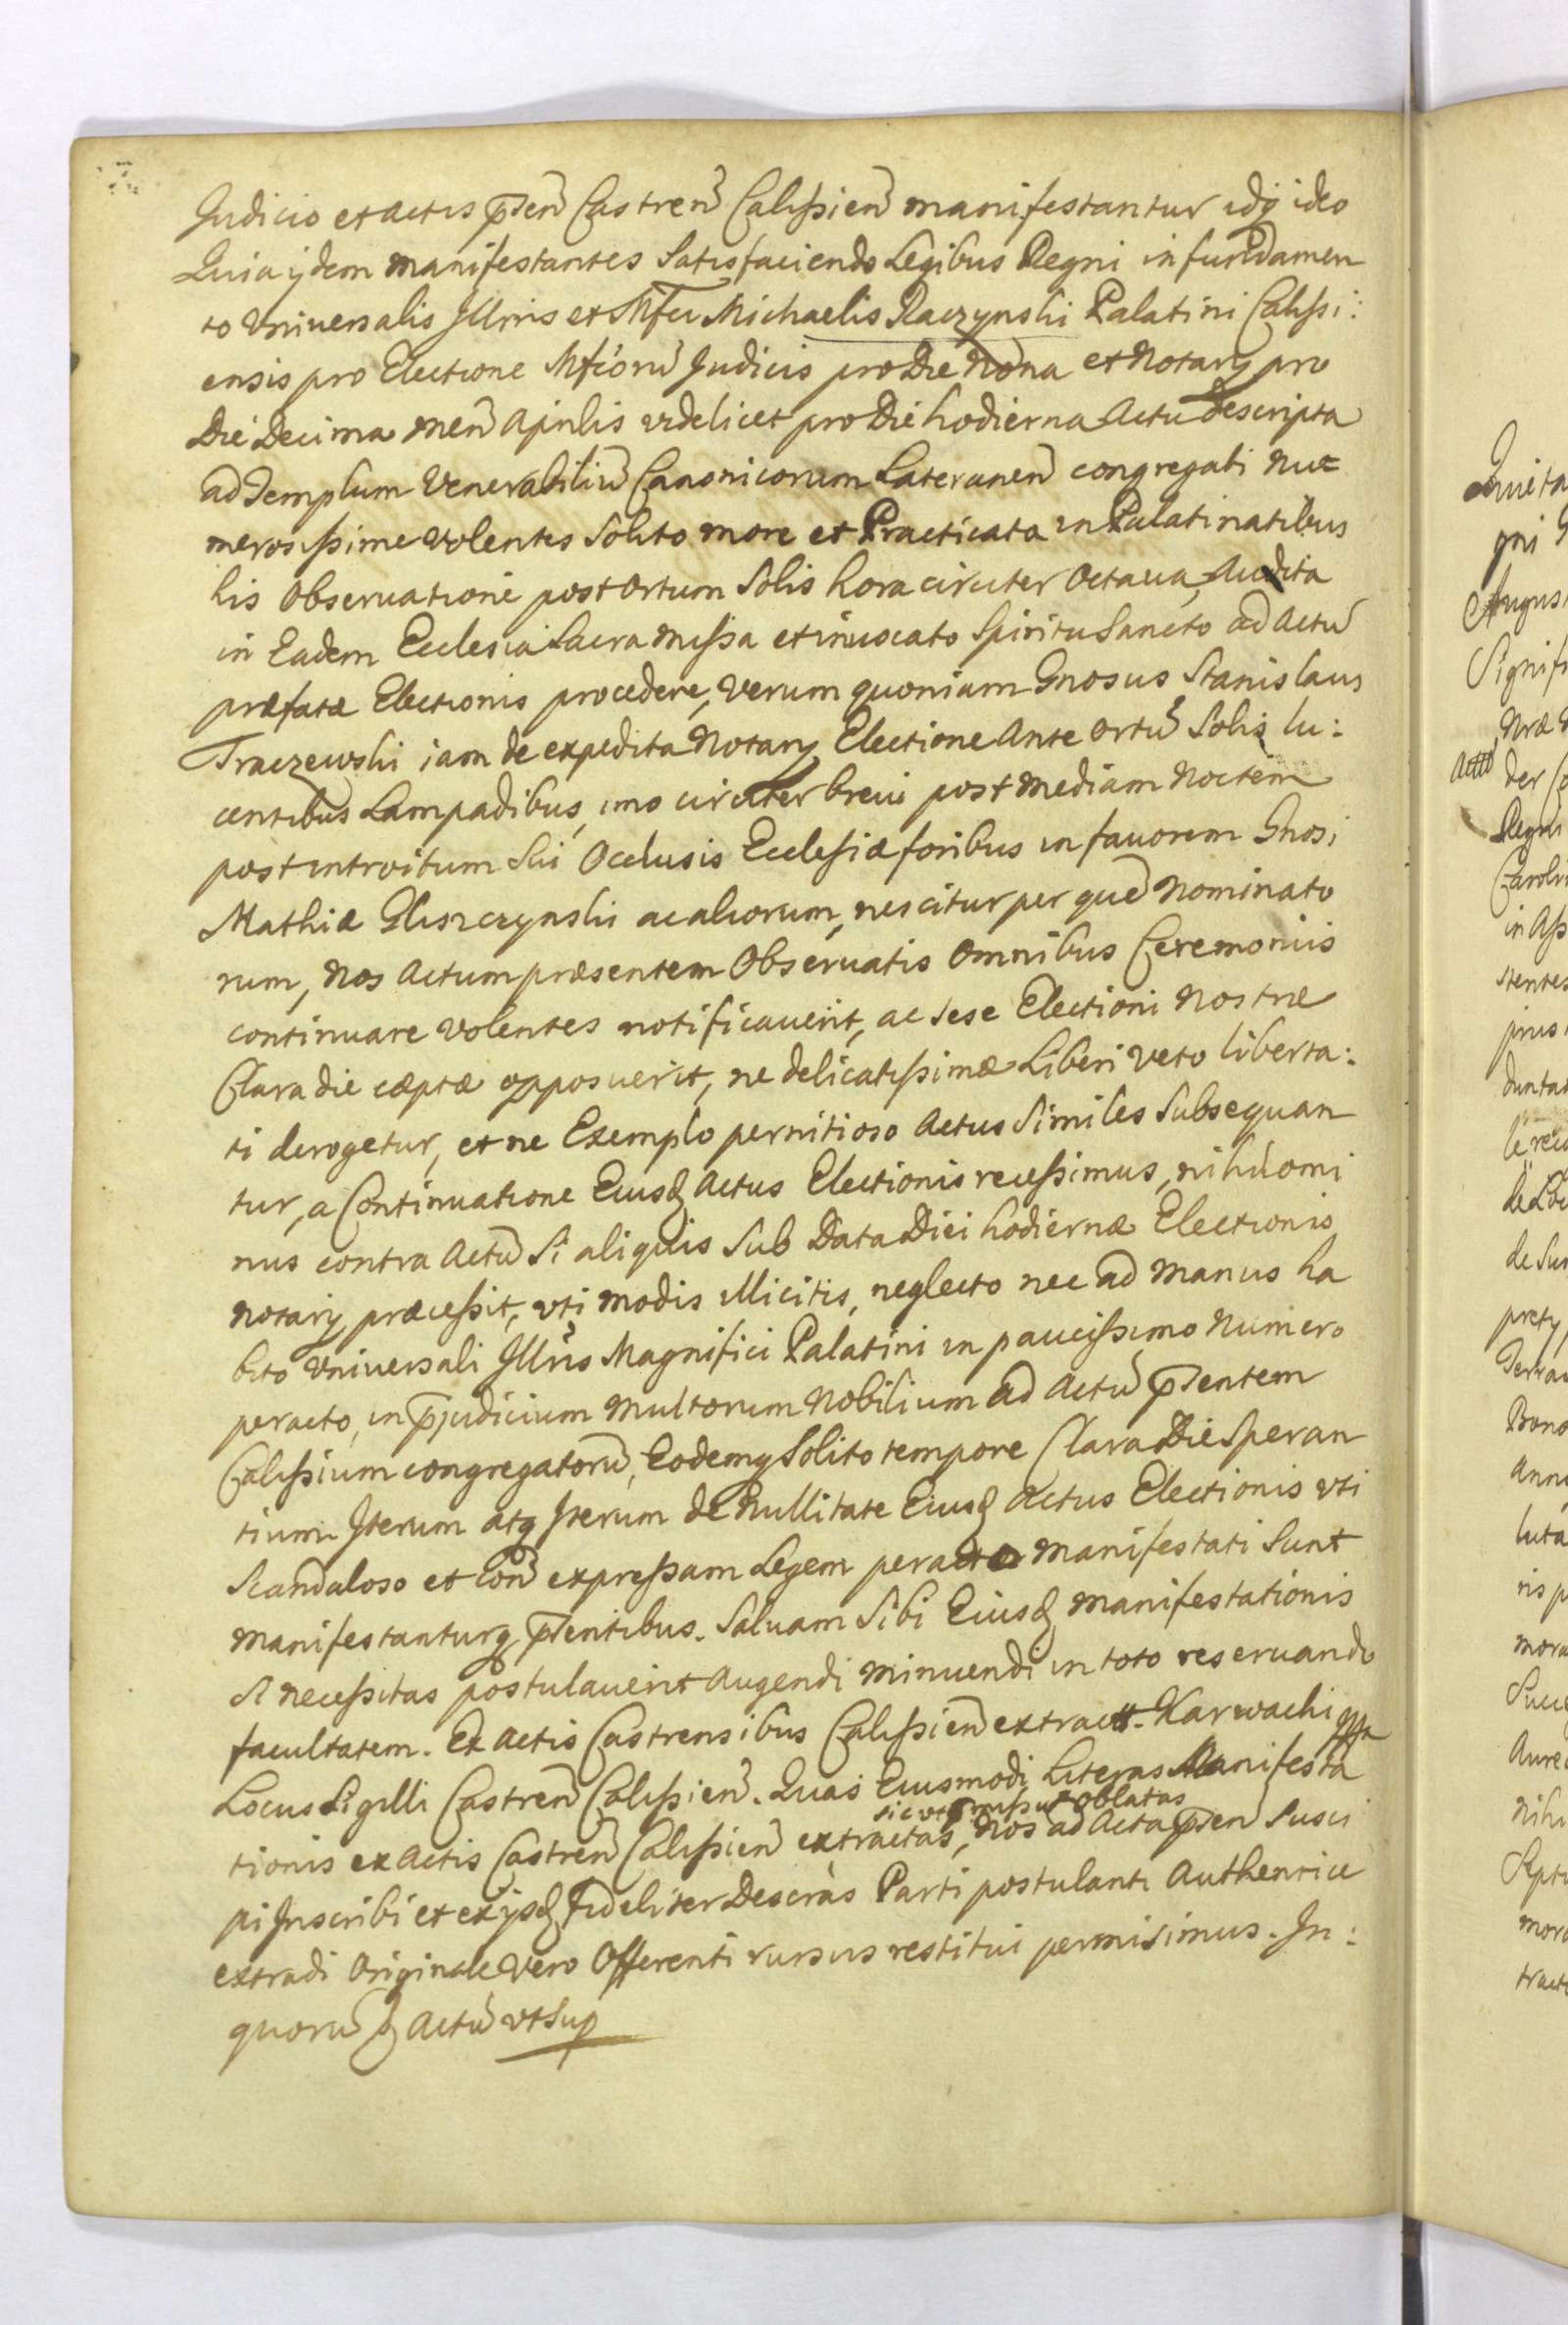 Judicio et actis p̄ten̄ Castren̄ Calissien̄ manifestantur idq̢ ideo
Quia ijdem manifestantes Satisfaciendo Legibus Regni in fundamen
to Vniuersalis Jllris et Mfci Michaelis Raczynski Palatini Calissi:
ensis pro Electione Mfcorū Judicis pro Die Nona et Notarij pro
Die Decima men̄ Aprilis videlicet pro Die hodierna Actu descripta
ad Templum Venerabiliū Canonicorum Lateranen̄ congregati nu:
merosissime volentes Solito more et Practicata in Palatinatibus
his Obseruatione post ortum Solis hora circiter Octaua, Audita
in Eadem Ecclesia Sacra missa et inuocato Spiritu Sancto ad actū
præfatæ Electionis procedere, Verum quoniam Gnosus Stanislaus
Traczewski iam de expedita Notarij Electione Ante ortū Solis lu:
centibus Lampadibus, imo circiter breui post mediam Noctem
post introitum Sui Occlusis Ecclesiæ foribus in fauorem Gnosi
Mathiæ Gliszczynski ac aliorum, nescitur per quē Nominato
rum, Nos Actum præsentem Obseruatis Omnibus Ceremoniis
continuare volentes notificauerit, ac sese Electioni Nostræ
Clara die cæptæ opposuerit, ne delicatissimæ Liberi veto liberta:
ti derogetur, et ne Exemplo pernitioso Actus Similes Subsequan
tur, a Continuatione Eiusd̢ Actus Electionis recessimus, nihilomi
nus contra Actū Si aliquis Sub Data Diei hodiernæ Electionis
notarij præcessit, vti modis illicitis, neglecto nec ad manus ha
bito Vniuersali Jllris Magnifici Palatini in paucissimo Numero
peracto, in p̄judicium multorum Nobilium ad Actū p̄tentem
Calissium congregatorū, Eodemq̢ Solito tempore Clara Die Speran
tium Jterum atq̢ Jterum de Nullitate Eiusd̢ Actus Electionis vti
Scandaloso et con̄ expressam Legem peracto manifestati Sunt
manifestanturq̢ p̄tentibus. Saluam Sibi Eiusd̢ manifestationis
Si necessitas postulauerit Augendi minuendi in toto reseruando
facultatem. Ex Actis Castrensibus Calissien̄ extract. Karwachi
Locus Sigilli Castren̄ Calissien̄. Quas Eiusmodi Literas Manifesta
sic vt oblatas
tionis ex Actis Castren̄ Calissien̄ extractas, Nos ad Acta p̄ten̄ Susci
pi Jnscribi et ex ijsd̢ Fideliter Descras Parti postulanti Authentice
extradi Originale Vero Offerenti rursus restitui permisimus. Jn:
quorū d̢ Actū vt Sup